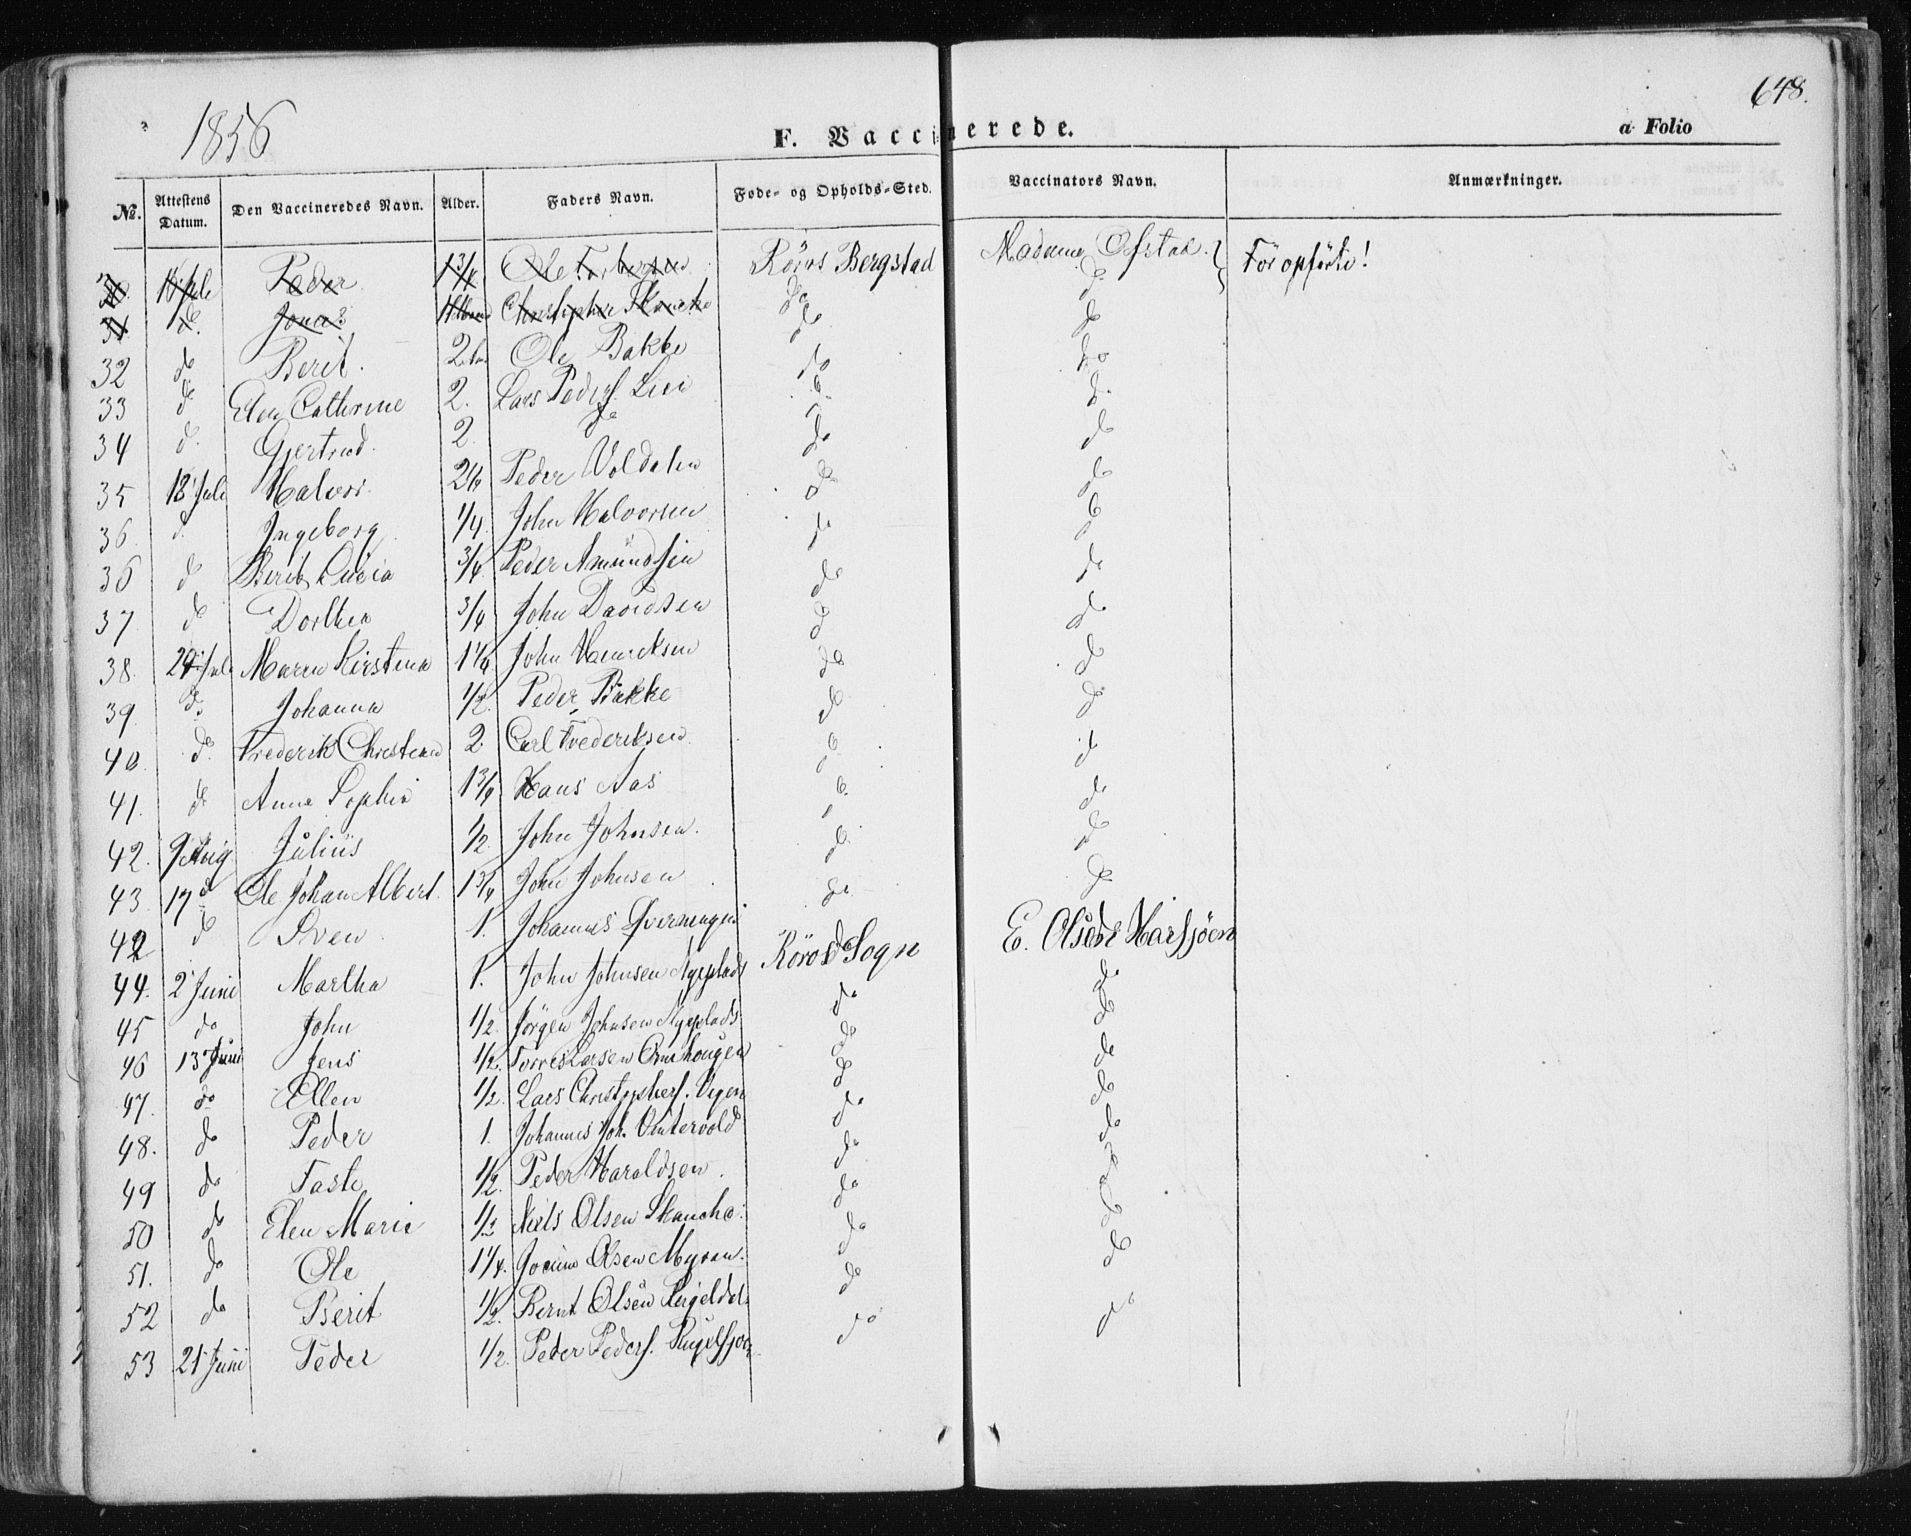 648.
1856
F. Vaccinerede.
a Folio
No. Attestens Datum. Den Vaccineredes Navn. Alder. Faders Navn. Føde- og Opholds-Sted. Vaccinators Navn. Anmærkninger.
Peder 1 3/4 Ole Röros Bergstad Madame Ofstad Før opførte!
31 do Jonas Christopher Skancke do do
32 do Berit. 2 Ole Bakke do do
33 do Elen Cathrine 2. Lars Peders. Lien do do
34 do Gjertrud. 2 do do do
35 18 Juli Halvor. Peder Voldalen do do
36. do Ingeborg 1/4 John Halvorsen do do
36 do Berit Livia 3/4 Peder Amundsen do do
37 do Dorthea 3/4 John Davidsen do do
38. 24 Juli Maren Kirstena 1 1/4 John Henreksen do do
39 do Johanna 1/2 Peder Bakke do do
40 do Frederik Christian 2 Carl Frederiksen do do
41. do Anne Sophia 1 3/4 Hans Aas do do
42. 9 Aug Julius 1/2 John Johnsen. do do
43. 17 do Ole Johan Albert. 1 3/4 John Johnsen do do
42 do Sven 1. Johannes Röros Sogn E. Olsen Harsjöen
44. 2 Juni Martha 1. John Johnsen Nyeplads do do
45 do John 1/2. Jörgen Johnsen Nyeplads do do
46 13 Juni Jens 1/2. Torres Larsen do do
47. do Ellen 1/2. Lars Christophers. Vigen do do
48. do Peder 1. Johannes Joh. Vintervold do do
49 do Taste 1/2. Peder Haraldsen. do do
50 do Elen Marie 1/2 Niels Olsen Skancke. do do
51. do Ole 1 1/4. Jocum Olsen Myran. do do
52 do Berit 1/2. Bernt Olsen do do
53 21 Juni Peder 1/2. Peder Peders. do do